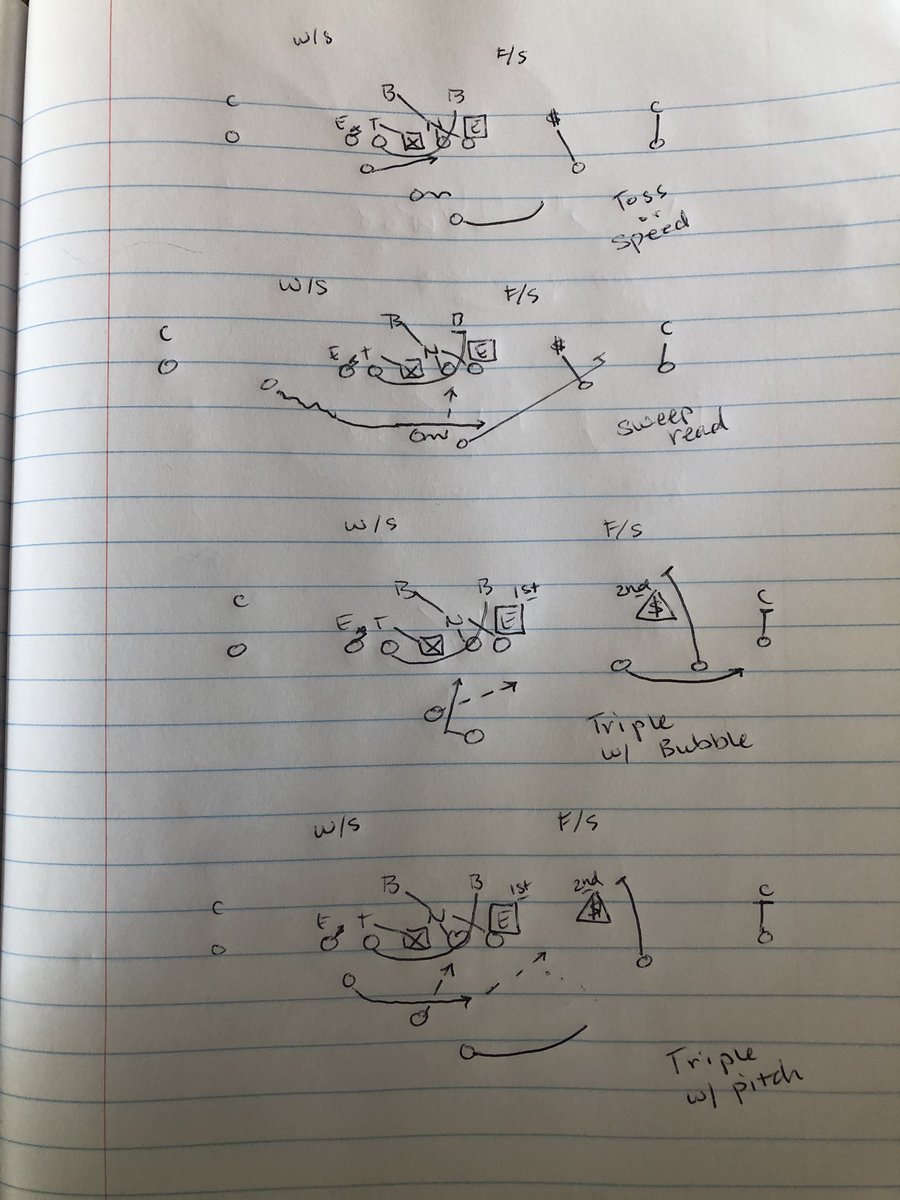 W/S F/S
C B B C
E T N E $
Toss
or
Speed
W/S F/S
C B B C
E T N E $
Sweep
read
W/S F/S
C B B 1st 2nd C
E T N E $
Triple
w/ Bubble
W/S F/S
C B B 1st 2nd C
E T N E $
Triple
w/ pitch